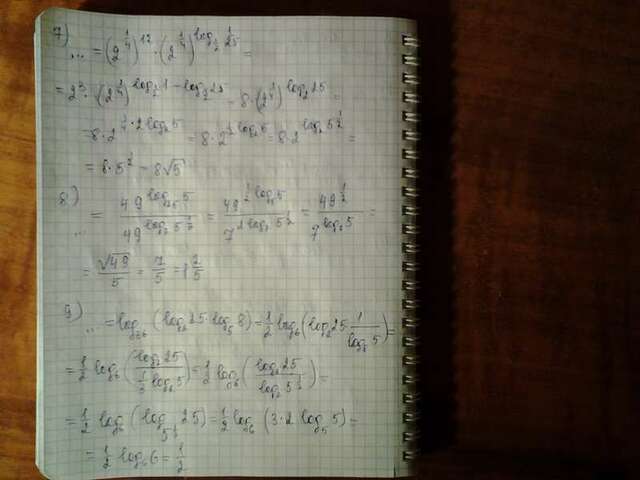 7) ... = (2^{\frac{1}{4}})^{12} · (2^{\frac{1}{4}})^{log_{\frac{1}{2}} \frac{1}{25}} =
= 2^3 · (2^{\frac{1}{4}})^{log_{\frac{1}{2}} 1 - log_{\frac{1}{2}} 25} = 8 · (2^{\frac{1}{4}})^{log_2 25} =
= 8 · 2^{\frac{1}{4} · 2 log_2 5} = 8 · 2^{\frac{1}{2} log_2 5} = 8 · 2^{log_2 5^{\frac{1}{2}}} =
= 8 · 5^{\frac{1}{2}} = 8√5
8) ... = \frac{49^{log_{25} 5}}{49^{log_7 5^{\frac{1}{2}}}} = \frac{49^{\frac{1}{2} log_5 5}}{7^{2 log_7 5^{\frac{1}{2}}}} = \frac{49^{\frac{1}{2}}}{7^{log_7 5}} =
= \frac{√49}{5} = \frac{7}{5} = 1\frac{2}{5}
9) ... = log_{36} (log_2 25 · log_5 8) = \frac{1}{2} log_6 (log_2 25 · \frac{1}{log_8 5}) =
= \frac{1}{2} log_6 (\frac{log_2 25}{\frac{1}{3} log_2 5}) = \frac{1}{2} log_6 (\frac{log_2 25}{log_2 5^{\frac{1}{3}}}) =
= \frac{1}{2} log_6 (log_{5^{\frac{1}{3}}} 25) = \frac{1}{2} log_6 (3 · 2 log_5 5) =
= \frac{1}{2} log_6 6 = \frac{1}{2}